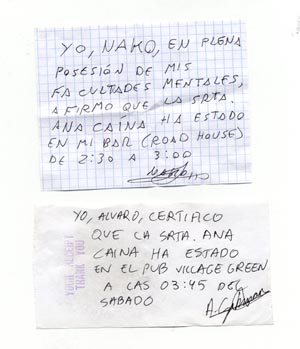 YO, NAKO, EN PLENA
POSESIÓN DE MIS
FACULTADES MENTALES,
AFIRMO QUE LA SRTA.
ANA CAÍNA HA ESTADO
EN MI BAR (ROAD HOUSE)
DE 2:30 A 3:00
YO, ALVARO, CERTIFICO
QUE LA SRTA. ANA
CAINA HA ESTADO
EN EL PUB VILLAGE GREEN
A LAS 03:45 DEL
SABADO
THANK YOU